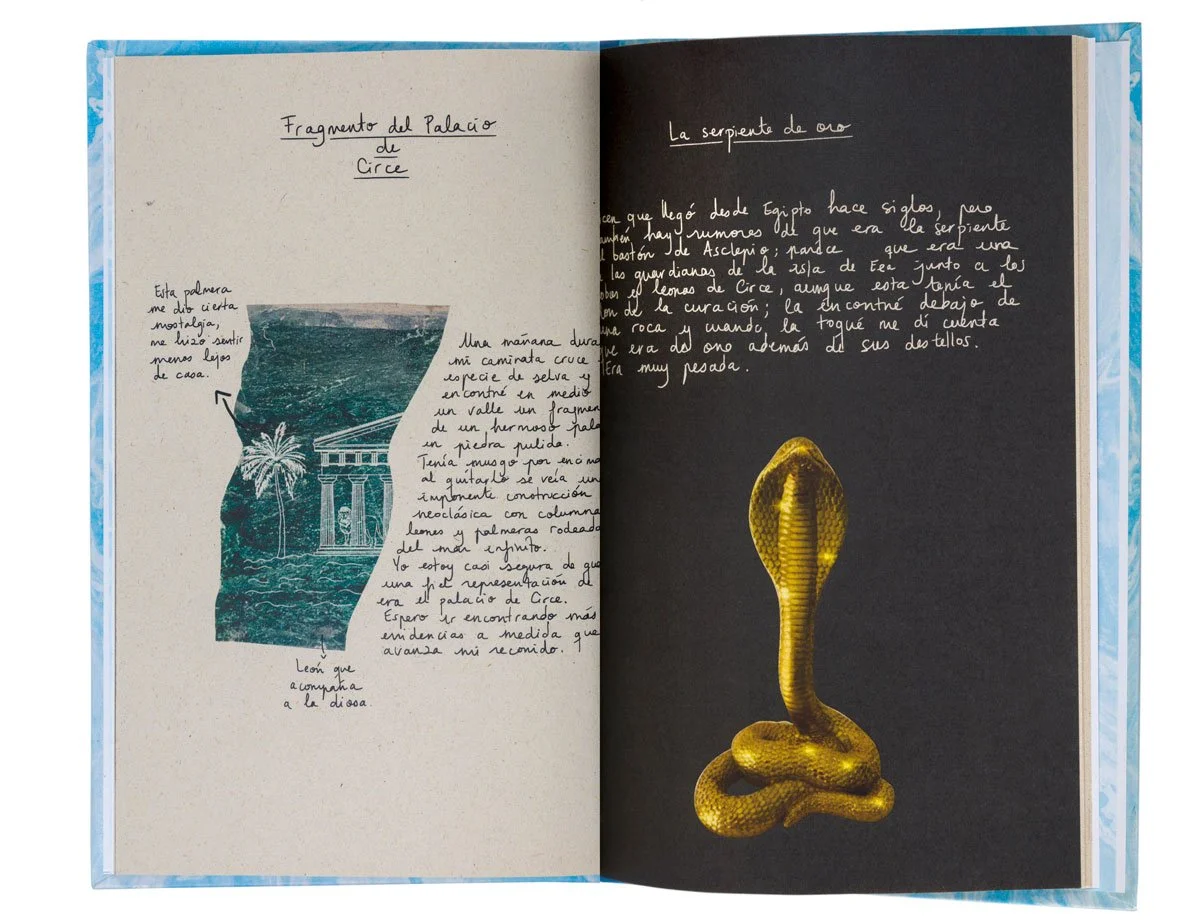 Fragmento del Palacio
de
Circe
Esta palmera
me dio cierta
nostalgia,
me hizo sentir
menos lejos
de casa.
Una mañana dura
mi caminata cruce
especie de selva y
encontré en medio
un valle un fragmen
de un hermoso pala
en piedra pulida.
Tenía musgo por encima
al quitarlo se veía un
imponente construcción
neoclásica con columna
leones y palmeras rodeada
del mar infinito.
Yo estoy casi segura de que
una fiel representación de
era el palacio de Circe.
Espero ir encontrando más
evidencias a medida que
avanza mi recorrido.
León que
acompaña
a la diosa.
La serpiente de oro
cen que llegó desde Egipto hace siglos, pero
ambién hay rumores de que era la serpiente
l bastón de Asclepio; parece que era una
las guardianas de la isla de Eea junto a los
obos y leones de Circe, aunque esta tenía el
on de la curación; la encontré debajo de
una roca y cuando la toqué me di cuenta
que era de oro además de sus destellos.
Era muy pesada.